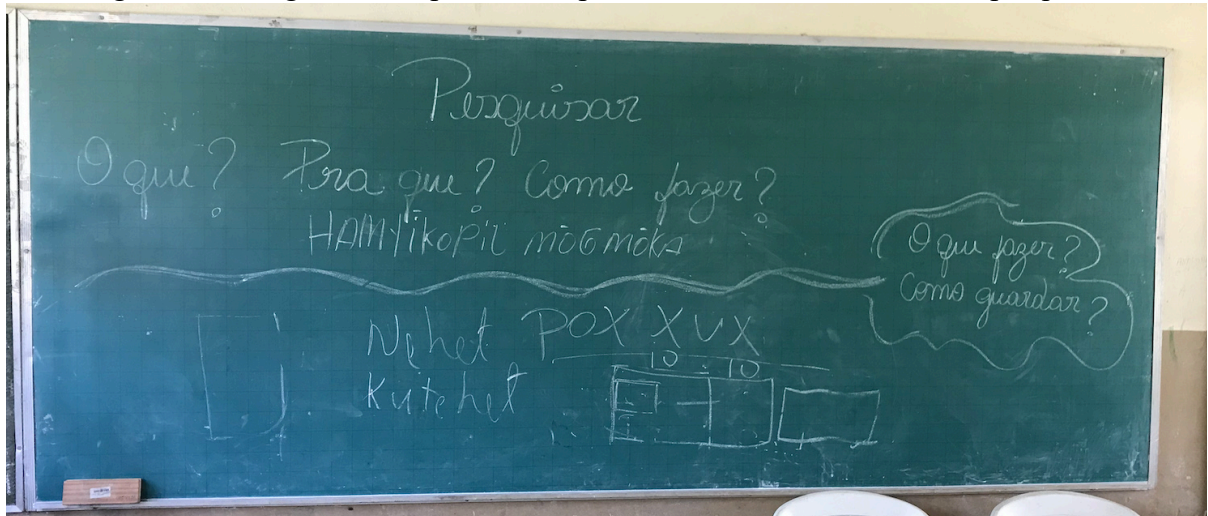 Pesquisar
O que? Pra que? Como fazer?
HAMYIKOPIT MÕGMÕKA
O que fazer?
Como guardar?
Nehet POX XUX
Kutehet
10 10